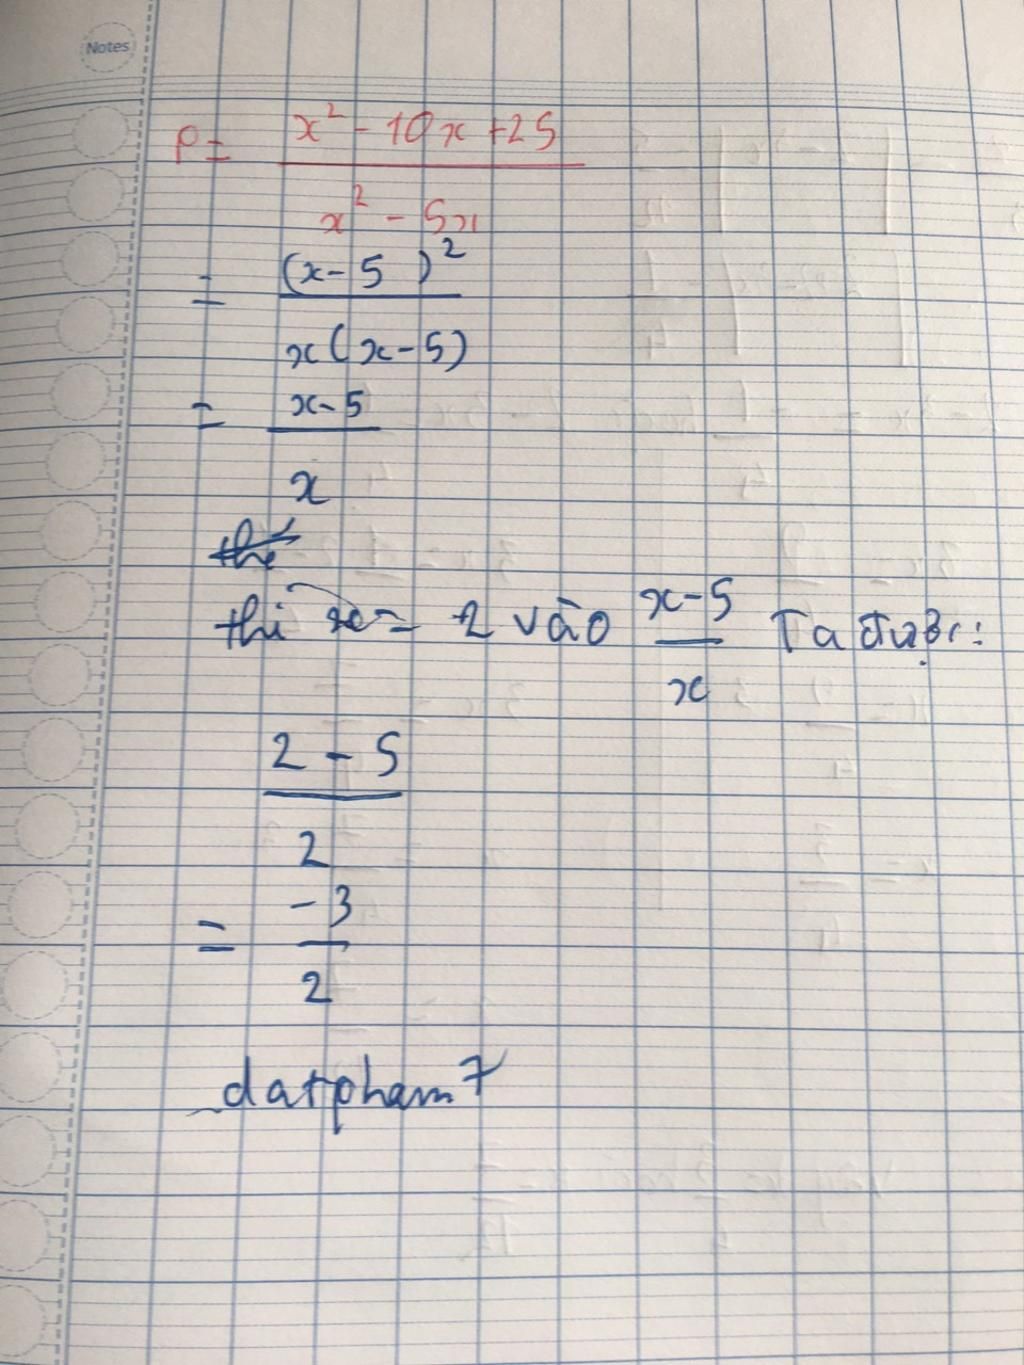 Notes
P = x² - 10x + 25
x² - 5x
= (x - 5)²
x(x - 5)
= x - 5
x
thì x = 2 vào x - 5 Ta được:
x
2 - 5
2
= -3
2
datpham7